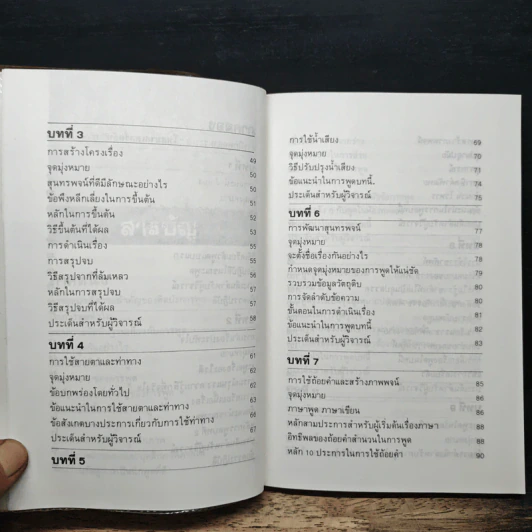 บทที่ 3
การสร้างโครงเรื่อง 49
จุดมุ่งหมาย 50
สุนทรพจน์ที่ดีมีลักษณะอย่างไร 50
ข้อพึงหลีกเลี่ยงในการขึ้นต้น 50
หลักในการขึ้นต้น 52
วิธีขึ้นต้นที่ได้ผล 53
การดำเนินเรื่อง 55
การสรุปจบ 55
วิธีสรุปจากที่ล้มเหลว 56
หลักในการสรุปจบ 56
วิธีสรุปจบที่ได้ผล 57
ประเด็นสำหรับผู้วิจารณ์ 58
บทที่ 4
การใช้สายตาและท่าทาง 61
จุดมุ่งหมาย 62
ข้อบกพร่องโดยทั่วไป 62
ข้อแนะนำในการใช้สายตาและท่าทาง
ข้อสังเกตบางประการเกี่ยวกับการใช้ท่าทาง
ประเด็นสำหรับผู้วิจารณ์
บทที่ 5
การใช้น้ำเสียง 69
จุดมุ่งหมาย 70
วิธีปรับปรุงน้ำเสียง 71
ข้อแนะนำในการพูดบทนี้ 74
ประเด็นสำหรับผู้วิจารณ์ 75
บทที่ 6
การพัฒนาสุนทรพจน์ 77
จุดมุ่งหมาย 78
จะตั้งชื่อเรื่องกันอย่างไร
กำหนดจุดมุ่งหมายของการพูดให้แน่ชัด 79
รวบรวมข้อมูลวัตถุดิบ 80
การจัดลำดับข้อความ 80
ขั้นตอนในการดำเนินเรื่อง 81
ข้อแนะนำในการพูดบทนี้ 82
ประเด็นสำหรับผู้วิจารณ์ 83
บทที่ 7
การใช้ถ้อยคำและสร้างภาพพจน์ 85
จุดมุ่งหมาย 86
ภาษาพูด ภาษาเขียน 86
หลักสามประการสำหรับผู้เริ่มต้นเรื่องภาษา 86
อิทธิพลของถ้อยคำสำนวนในการพูด 88
หลัก 10 ประการในการใช้ถ้อยคำ 90